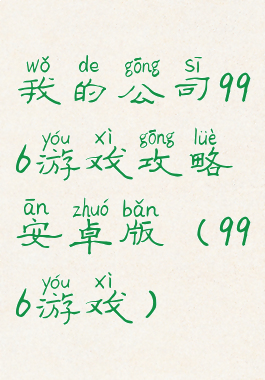 wǒ de gōng sī
我的公司99
yóu xì gōng lüè
6游戏攻略
ān zhuó bǎn
安卓版（99
yóu xì
6游戏）